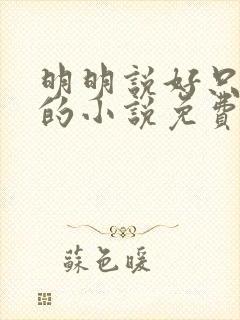 明明説好只
的小説免費
蘇色暖